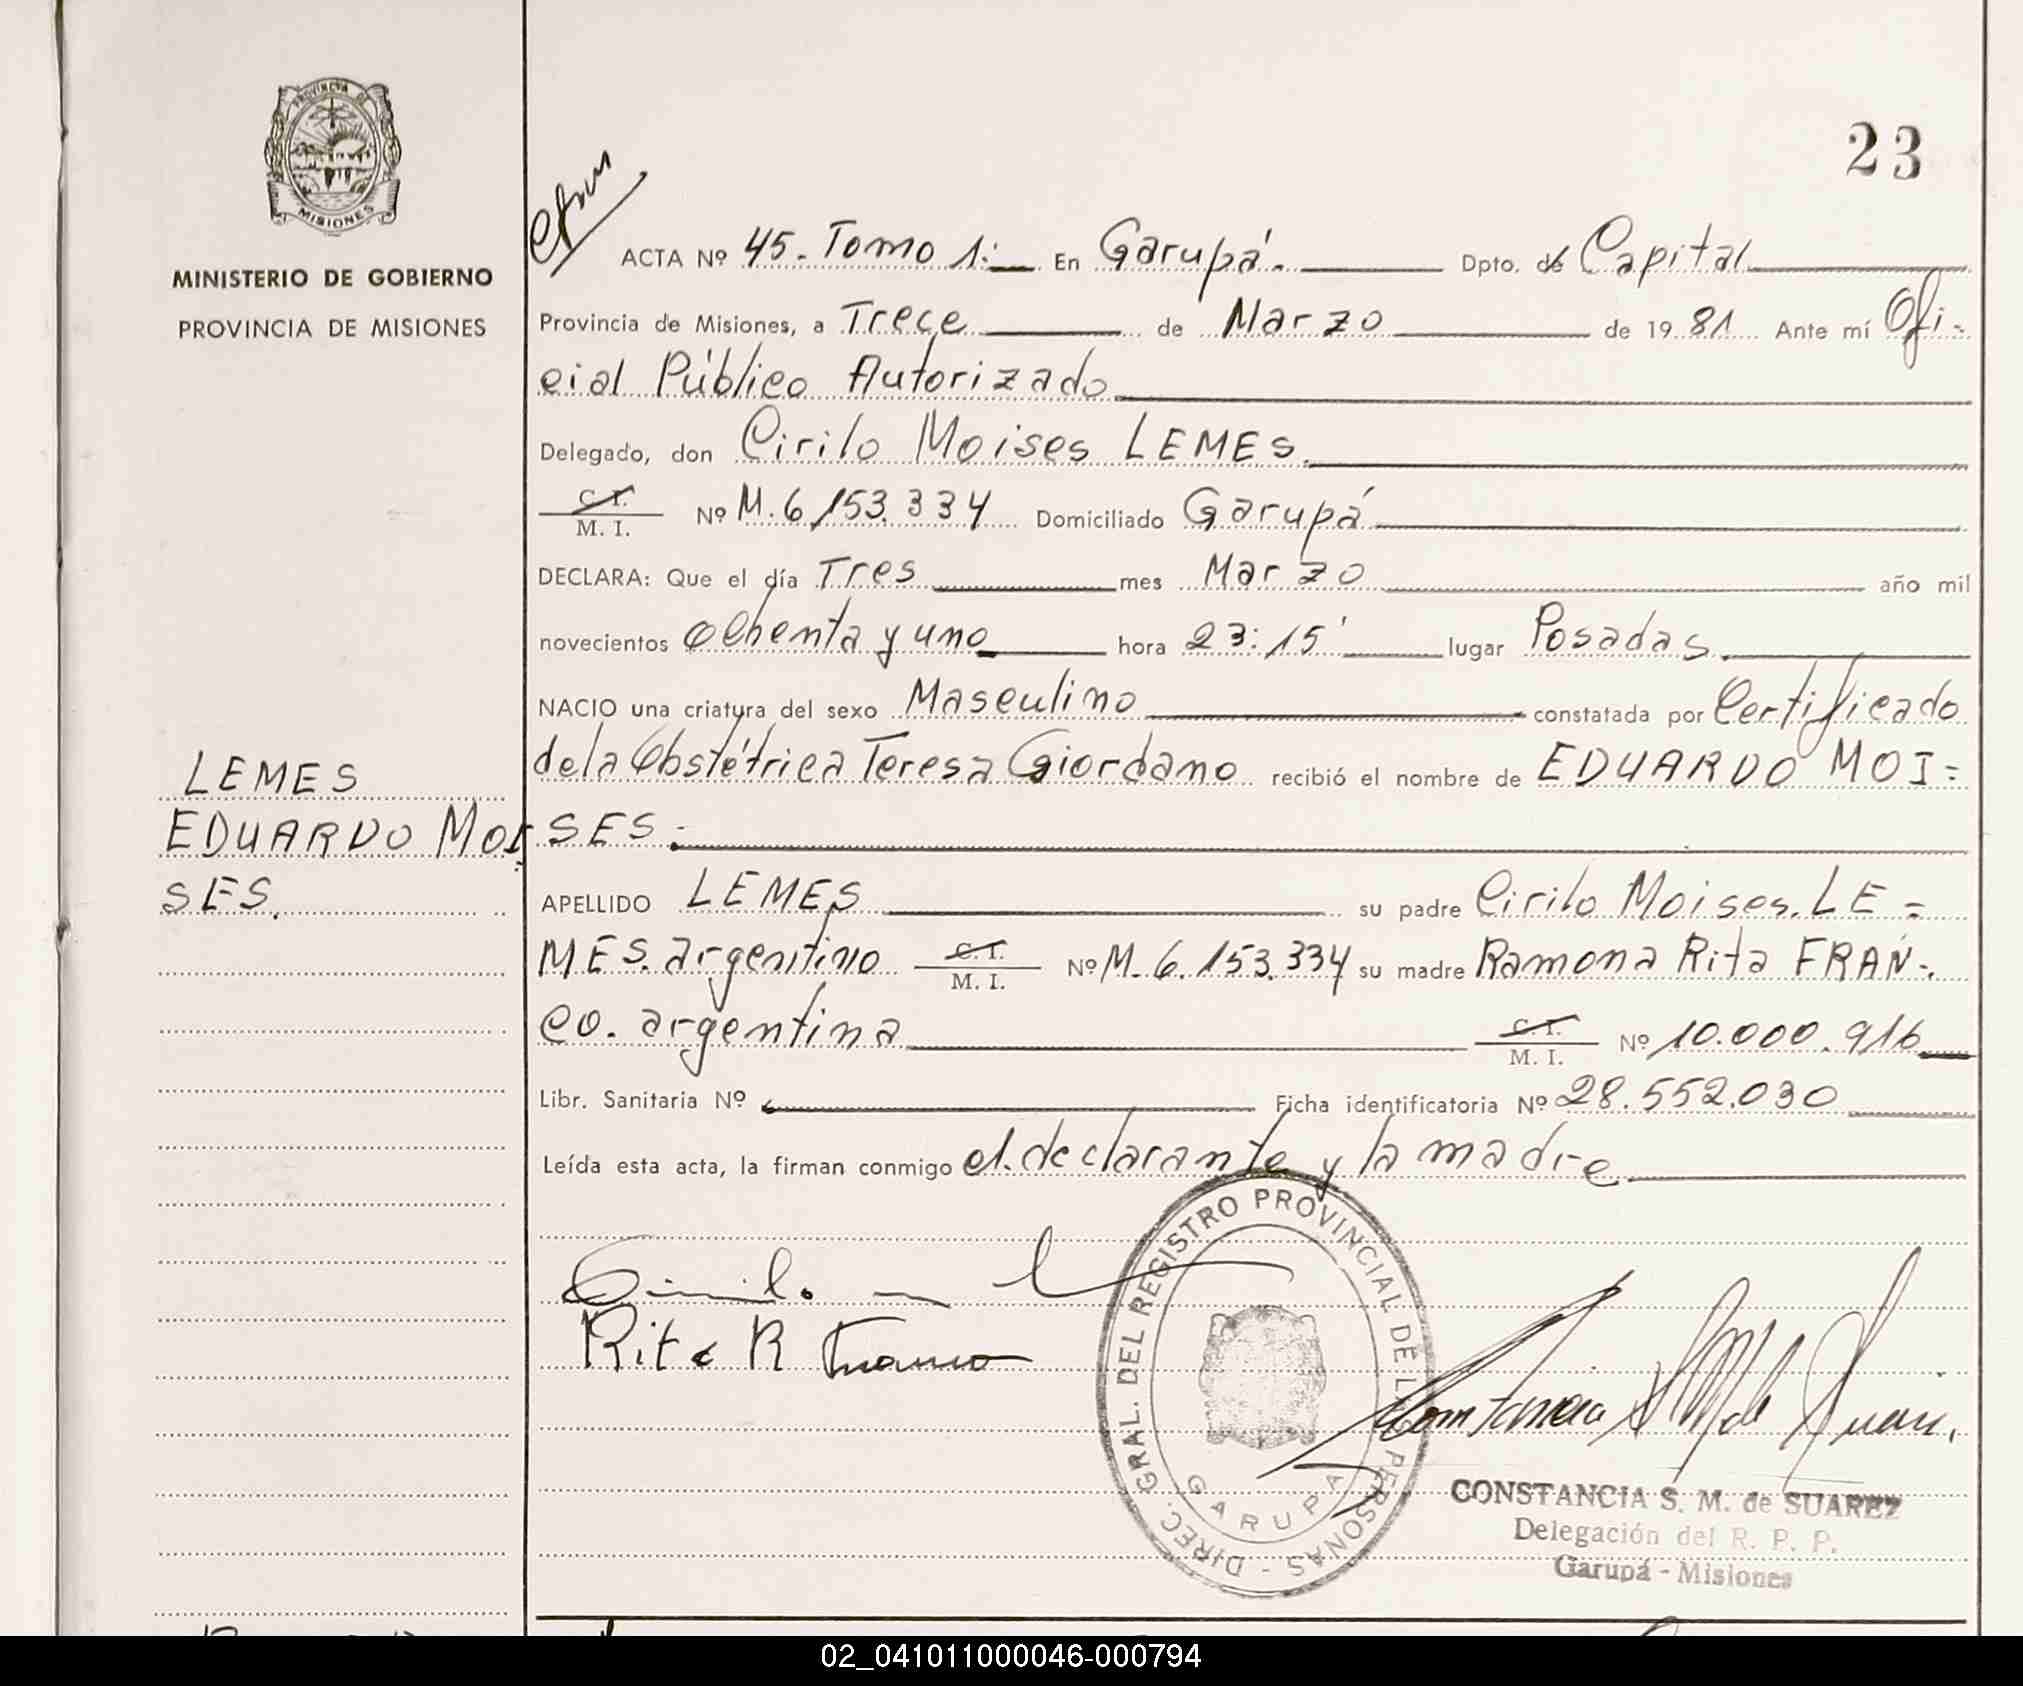 PROVINCIA DE
MISIONES
MINISTERIO DE GOBIERNO
PROVINCIA DE MISIONES
23
ACTA Nº 45. Tomo 1:— En Garupá. Dpto. de Capital
Provincia de Misiones, a Trece de Marzo de 19 81 Ante mí Ofi-
cial Público Autorizado
Delegado, don Cirilo Moises LEMES.
C. I.
M. I. Nº M. 6.153.334 Domiciliado Garupá
DECLARA: Que el día Tres mes Marzo año mil
novecientos ochenta y uno hora 23:15' lugar Posadas.
NACIO una criatura del sexo Masculino constatada por Certificado
de la Obstétrica Teresa Giordano recibió el nombre de EDUARDO MOI=
SES.-
LEMES
EDUARDO MOI-
SES.
APELLIDO LEMES su padre Cirilo Moises. LE=
MES. argentino C. I. M. I. Nº M. 6.153.334 su madre Ramona Rita FRAN-
CO. argentina C. I. M. I. Nº 10.000.916
Libr. Sanitaria Nº Ficha identificatoria Nº 28.552.030
Leída esta acta, la firman conmigo el declarante y la madre
Rita R Franco
DIREC. GRAL. DEL REGISTRO PROVINCIAL DE LAS PERSONAS -
GARUPA
CONSTANCIA S. M. de SUAREZ
Delegación del R. P. P.
Garupá - Misiones
02_041011000046-000794